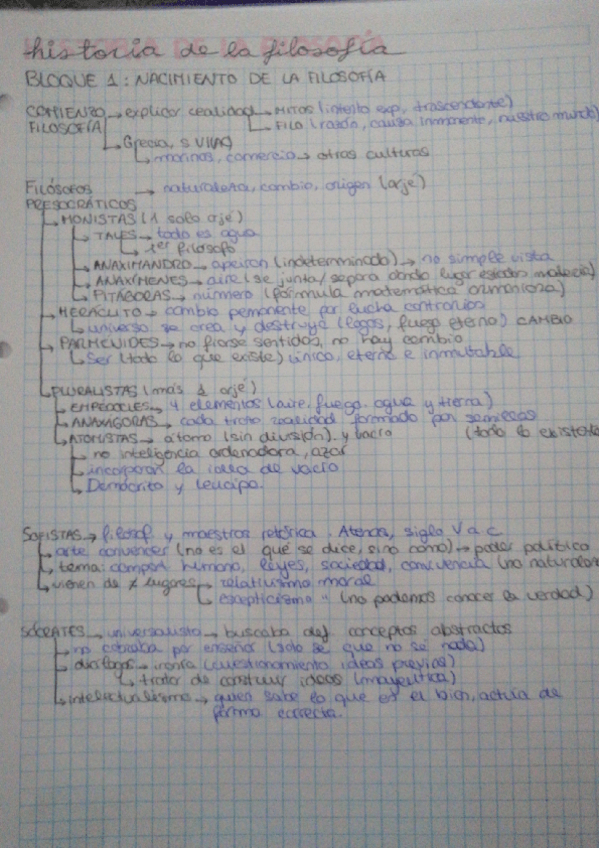 historia de la filosofía
BLOQUE 1: NACIMIENTO DE LA FILOSOFÍA
COMIENZO → explicar realidad → MITOS (intento exp. trascendente)
FILOSOFÍA ↳ FILO (razón, causa inmanente, nuestro mundo)
↳ Grecia, s VI
↳ marinos, comercio → otras culturas
FILÓSOFOS → naturaleza, cambio, origen (arjé)
PRESOCRÁTICOS
→ MONISTAS (1 solo arjé)
↳ TALES → todo es agua
↳ 1er filósofo
↳ ANAXIMANDRO → apeiron (indeterminado) → no simple vista
↳ ANAXÍMENES → aire (se junta/separa dando lugar estados materia)
↳ PITÁGORAS → número (fórmula matemática armoniosa)
→ HERÁCLITO → cambio permanente por lucha contrarios
↳ universo se crea y destruye (logos, fuego eterno) CAMBIO
→ PARMÉNIDES → no fiarse sentidos, no hay cambio
↳ Ser (todo lo que existe) único, eterno e inmutable
↳ PLURALISTAS (más 1 arjé)
↳ EMPÉDOCLES → 4 elementos (aire, fuego, agua y tierra)
↳ ANAXÁGORAS → cada trozo realidad formado por semillas
↳ ATOMISTAS → átomo (sin división) y vacío (todo lo existente
↳ no inteligencia ordenadora, azar
↳ incorporan la idea de vacío
↳ Demócrito y Leucipo.
SOFISTAS → filósof y maestros retórica. Atenas, siglo V a C
↳ arte convencer (no es el qué se dice, sino cómo) → poder político
↳ tema: comport humano, leyes, sociedad, convivencia (no naturaleza
↳ vienen de ≠ lugares → relativismo moral
↳ escepticismo " (no podemos conocer la verdad)
SÓCRATES → universalista → buscaba def. conceptos abstractos
↳ no cobraba por enseñar (solo sé que no sé nada)
↳ diálogos → ironía (cuestionamiento ideas previas)
↳ tratar de construir ideas (mayéutica)
↳ intelectualismo → quien sabe lo que es el bien, actúa de
forma correcta.